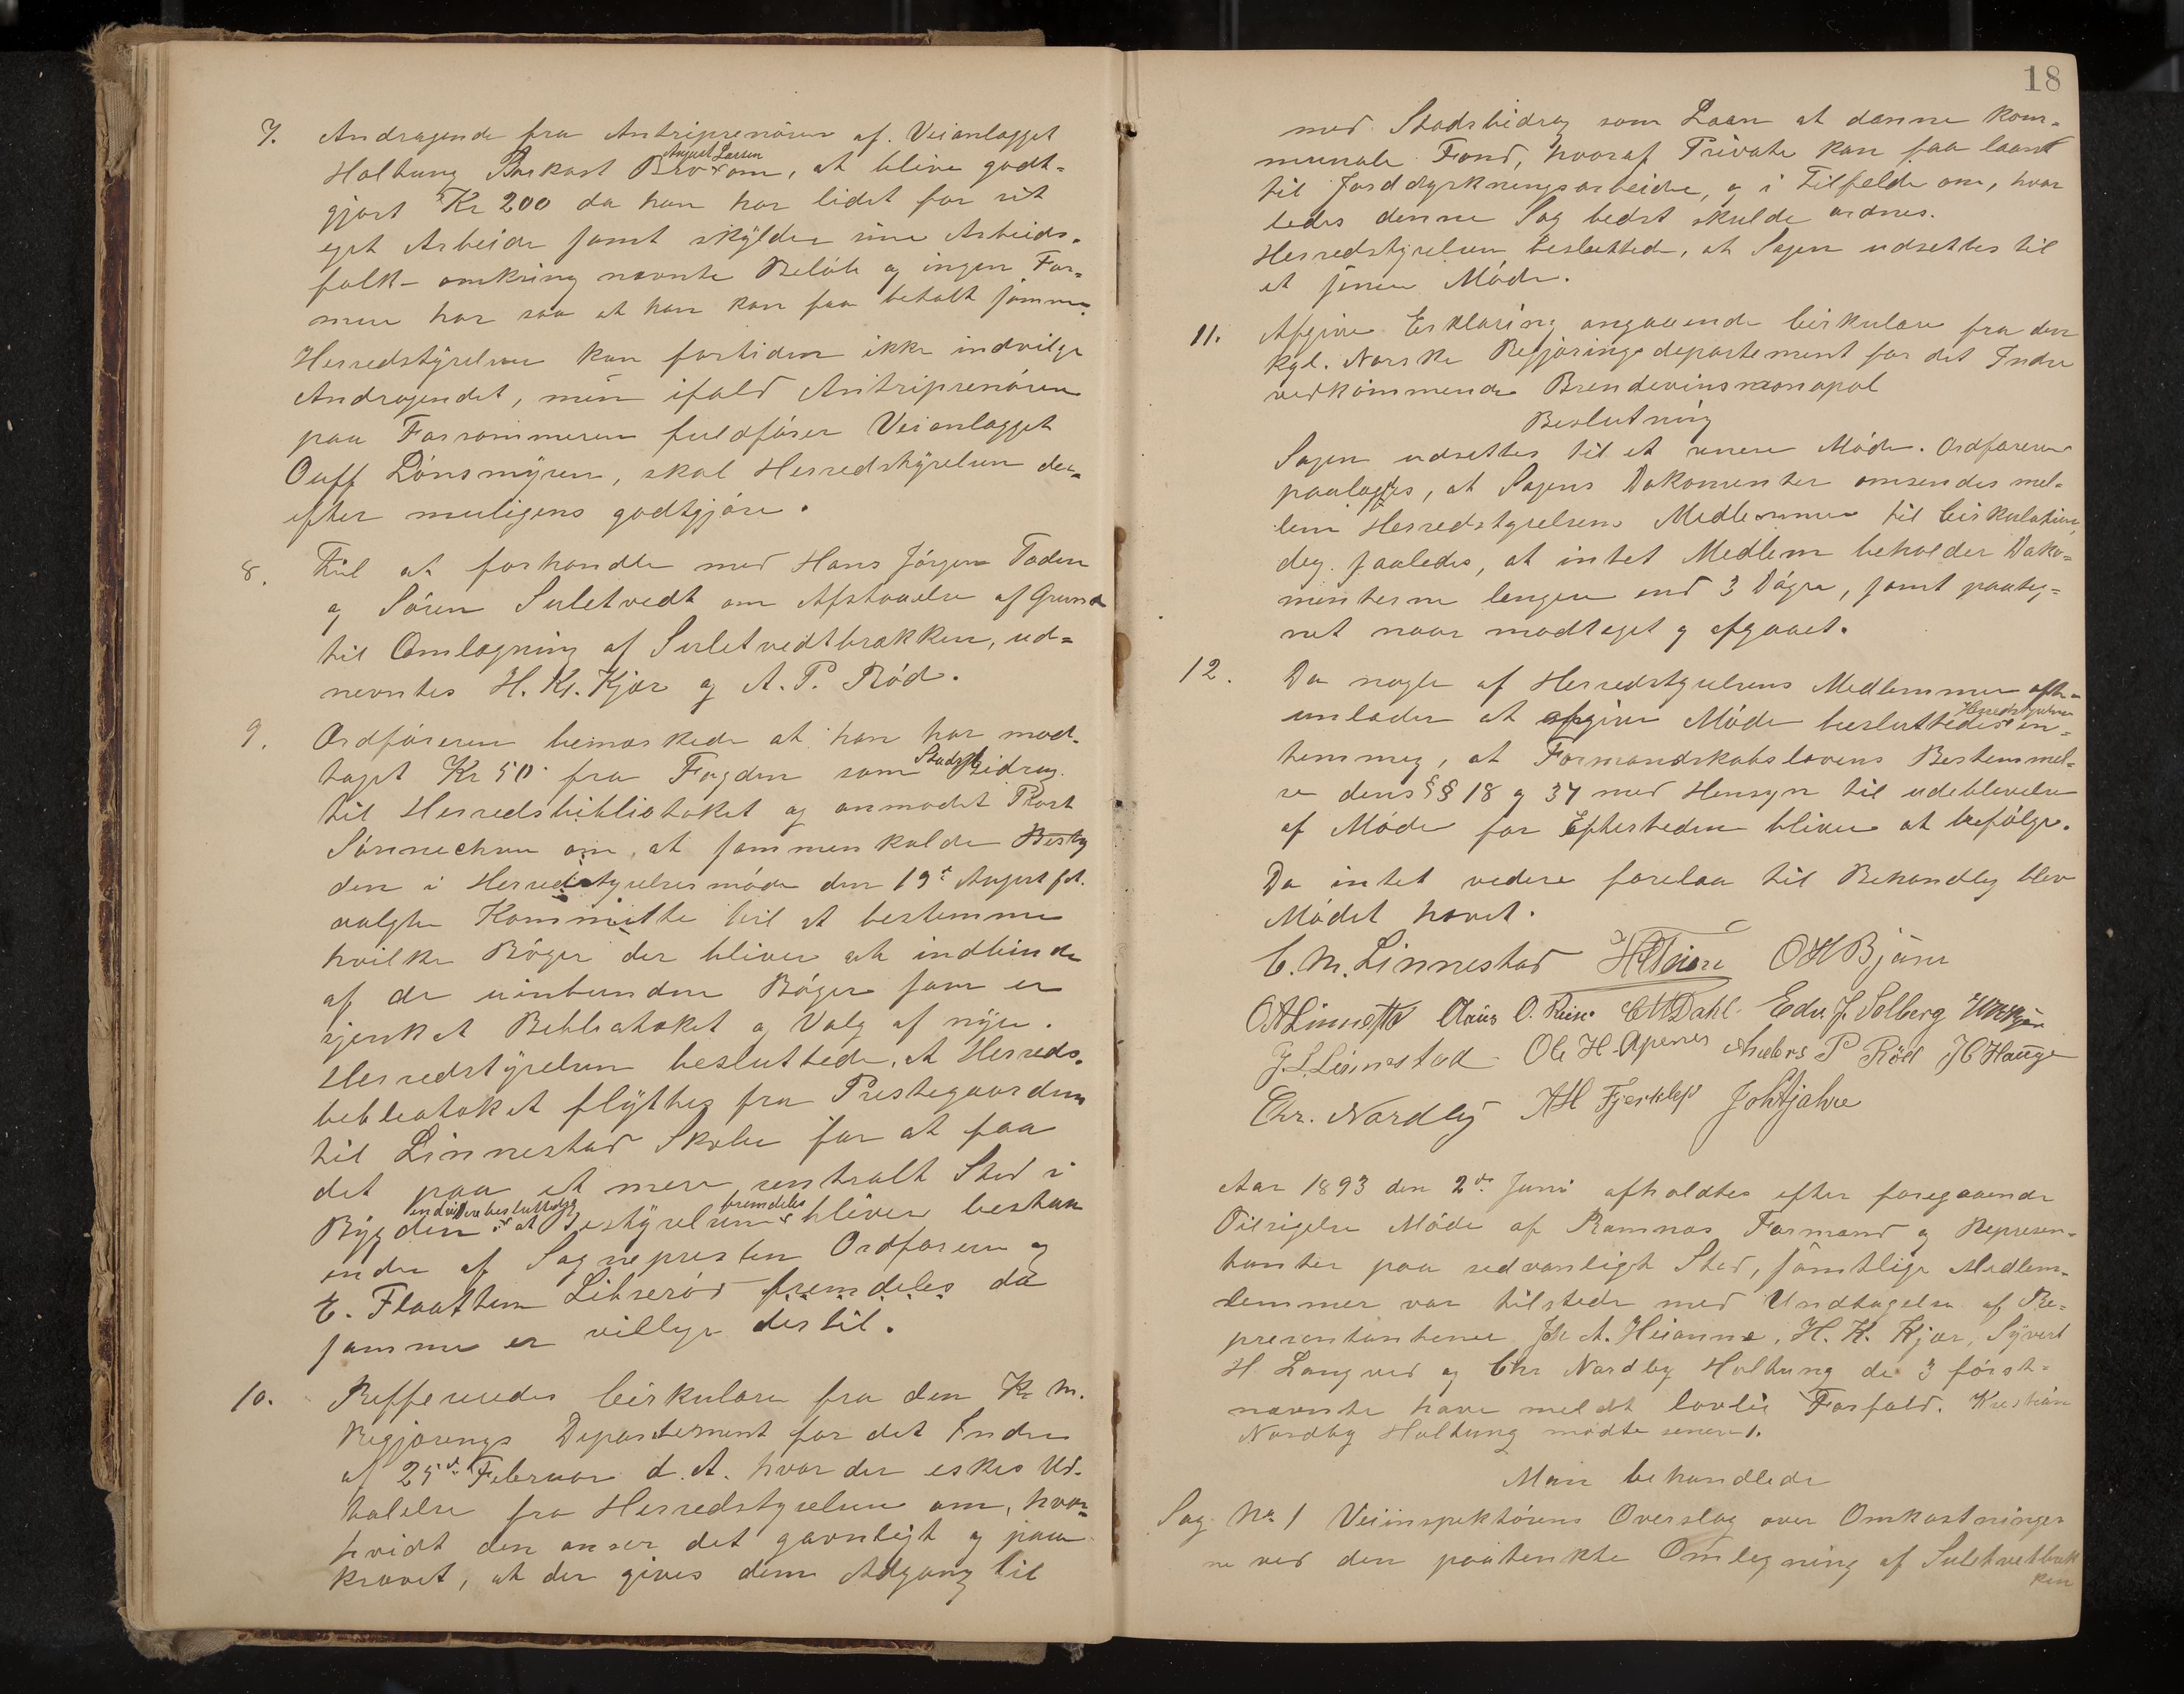 7. Andragende fra Antriprenören af Veianlægget
Holtung Barkost August Larsen om, at blive godt-
gjort Kr 200 da han har lidt for sit
eget Arbeide samt skÿlder sine Arbeids-
folk omkring nævnte Belöb og ingen For-
mue har saa at han kan faa betalt samme.
Herredstÿrelsen kan fortiden ikke indvilge
Andragendet, men ifald Antriprenören
paa Forsommeren fuldförer Veianlægget
Lönsmÿren, skal Herredstÿrelsen der-
efter muligens godtgjöre.
8. Til at forhandle med Hans Jörgen Taden
og Sören Suletvedt om Afstaaelse af Grund
til Omlægning af Suletvedtbakken, ud-
nevntes H. Kr. Kjær og A. P. Röd.
9. Ordföreren bemærkede at han har mod-
taget Kr 50 fra Fogden som Stads Bidrag
til Herredsbibliotøket og anmodet Prost
Sönnechsen om, at sammenkalde
den i Herredstyrelsesmöde den 19de August f.A.
valgte Kommitte til at bestemme
hvilke Böger der bliver at indbinde
af de uinbundne Böger som er
sjenket Bebliotøket og Valg af nÿe.
Herredstÿrelsen besluttede, at Herreds-
bebliotøket flÿttes fra Prestegaarden
til Linnestad Skole for at faa
det paa et mere sentralt Sted i
Bÿgden endvidere besluttedes at Bestÿrelsen fremdeles bliver bestaa-
ende af Sognepresten Ordföreren og
E. Flaatten Libreröd fremdeles da
samme er villige dertil.
10. Reffereredes Cirkulære fra den K. N.
Regjærings Departement for det Indre
af 25de Februar d. A. hvor der eskes Ud-
talelse fra Herredstyrelsen om, hvor-
hvidt den anser det gavnligt og paa-
krævet, at der gives dem Adgang til
18
med Stadsbidrag som Laan at danne kom-
munale Fond, hvoraf Private kan faa laant
til Jorddyrkningsarbeide, og i Tilfelde om, hvor
ledes denne Sag bedst skulde ordnes.
Herredstÿrelsen besluttede, at Sagen udsettes til
et senere Möde.
11. Afgive Erklæring angaaende Cirkulære fra den
Kgl. Norske Regjæringsdepartement for det Indre
vedkommende Brendevinsmonopol
Beslutning
Sagen udsettes til et senere Möde. Ordföreren
paalagdes, at Sagens Dokumenter omsendes mel-
lem Herredstyrelsens Medlemmer til Cirkulation
dog saaledes, at intet Medlem beholder Doku-
menterne lengere end 3 Dögn, samt paateg-
net naar modtaget og afgaaet.
12. Da nogle af Herredstyrelsens Medlemmer ofte
unlader at afgive Möde besluttede Herredstyrelsen en-
temmig, at Formandskabslovens Bestemmel-
se dens §§ 18 og 37 med Hensyn til udeblevelse
af Möde for Efterheden bliver at befölge.
Da intet vedere forelaa til Behandlg blev
Mödet hævet.
C. M. Linnestad OHBjäre
OALinnestad Claus O. Rein CMDahl Edv. J. Solberg HKrKjær
J. L. Linnestad Ole H. Apenes Anders P Röd JCHauge
Chr. Nordbÿ AH Fjerklep
Aar 1893 den 2de Juni afholdtes efter foregaaende
Tilsigelse Möde af Ramnæs Formand og Represen-
tanter paa sedvanligt Sted, samtlige Medlem-
lemmer var tilstede med Undtagelse af Re-
presentanterne Joh A. Heianne, H. K. Kjær, Sÿvert
H Langved og Chr Nordby Holtung de 3 först-
nævnte have meldt lovlig Forfald. Kristian
Nordby Holtung mødte senere.
Man behandlede
Sag No 1 Veiinspektörens Overslag over Omkostninger
ne ved den paatenkte Omlegning af Suletvetbak
ken